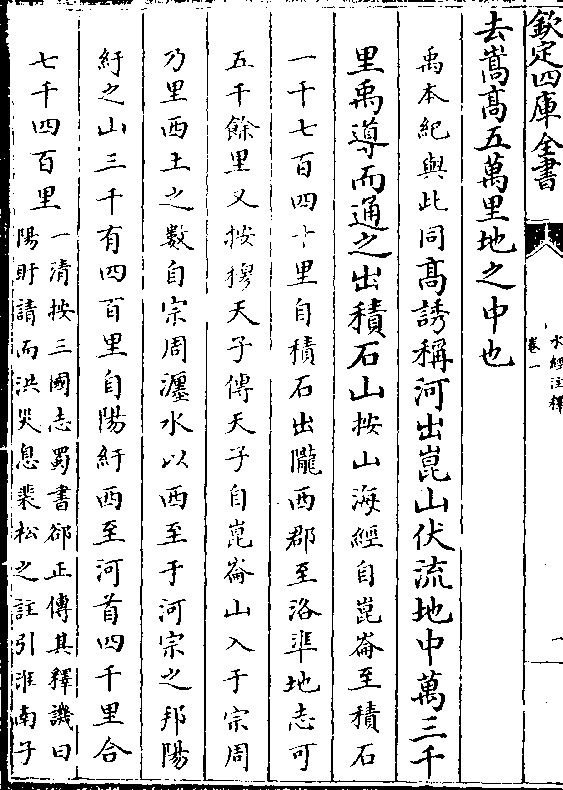 欽定四庫全書
水經注釋
卷一
一
去嵩髙五萬里地之中也
禹本紀與此同髙誘稱河出崑山伏流地中萬三千
里禹導而通之出積石山按山海經自崑崙至積石
一千七百四十里自積石出隴西郡至洛凖地志可
五千餘里又按穆天子傳天子自崑崙山入于宗周
乃里西土之數自宗周瀍水以西至于河宗之邦陽
紆之山三千有四百里自陽紆西至河首四千里合
七千四百里
一清按三國志蜀書郤正傳其釋譏曰
陽盱請而洪災息裴松之註引淮南子